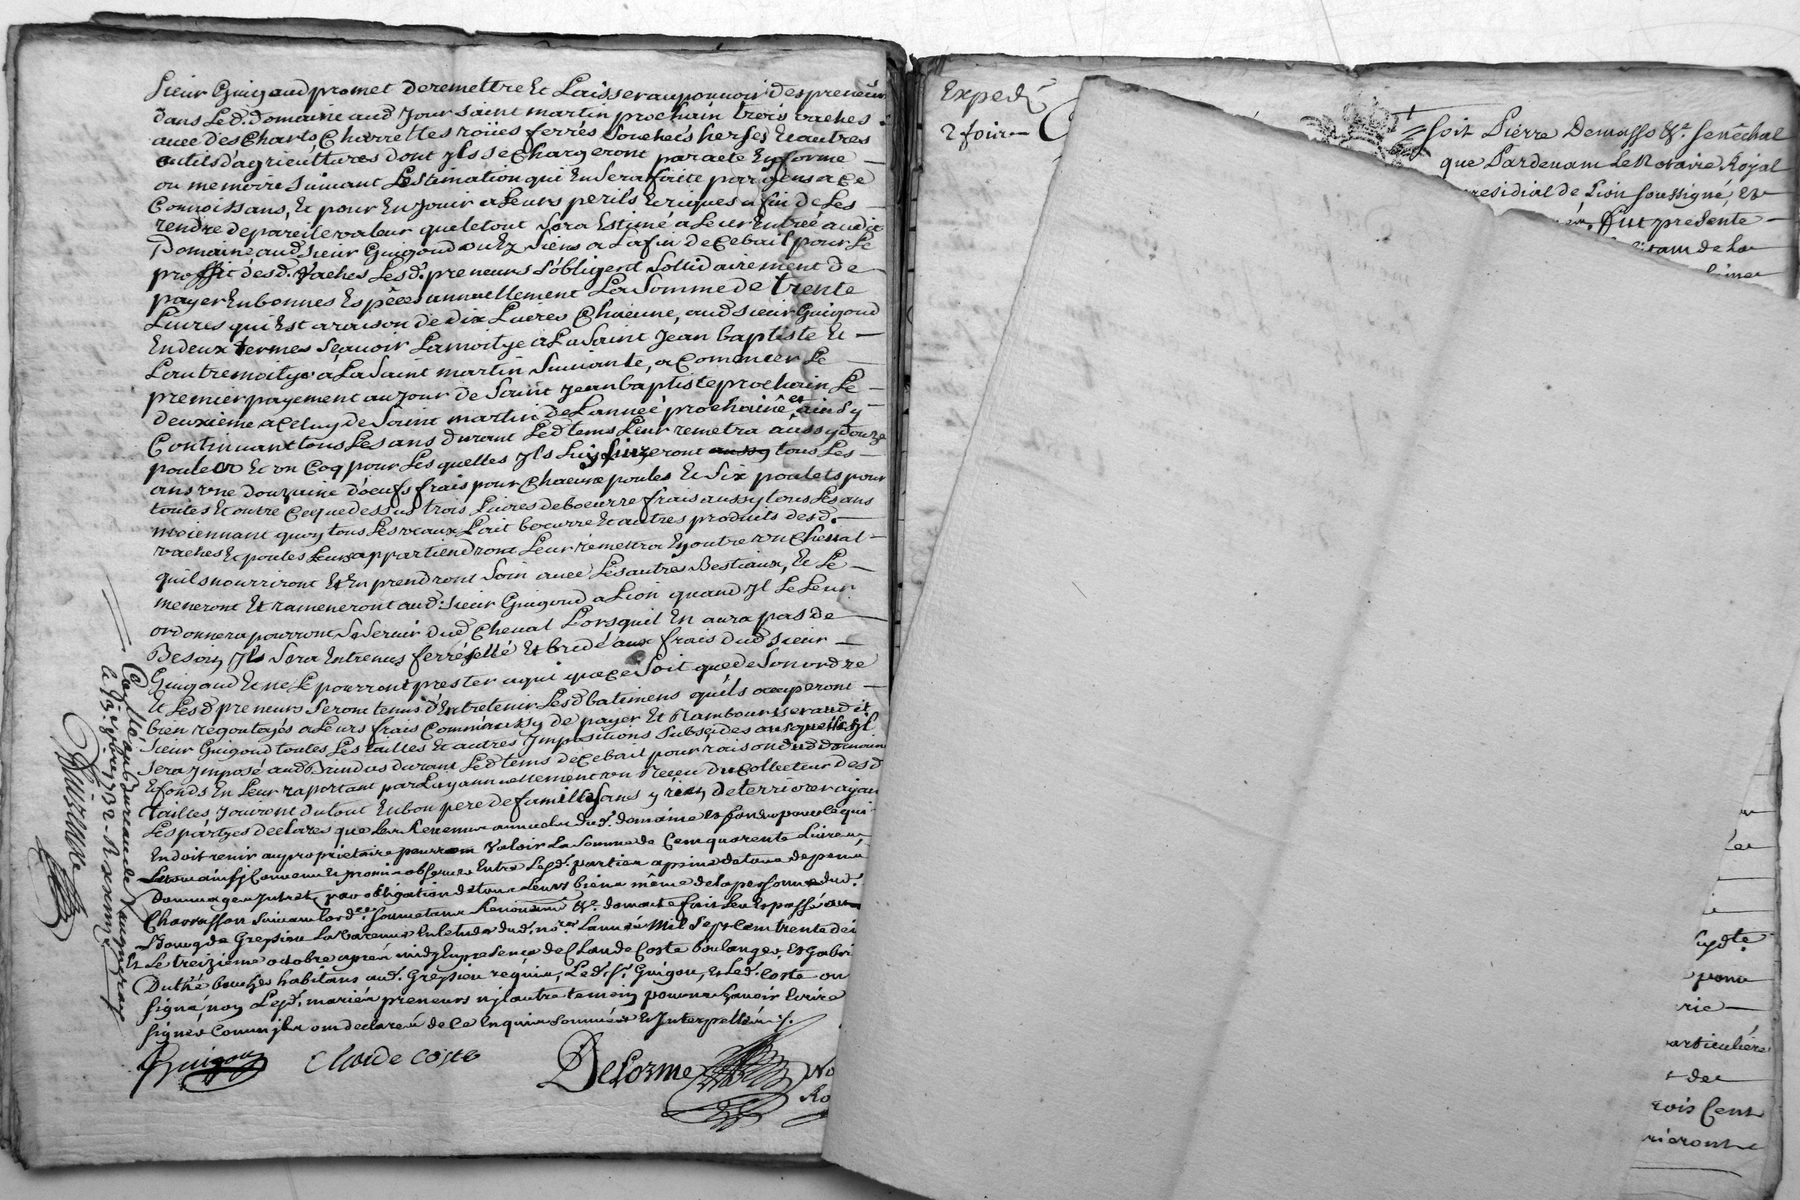 Sieur Guigoud promet de remettre Et Laisser au pouvoir des preneurs
dans Led. Domaine aud Jour Saint martin prochain trois vaches
avec des Charts, Charrettes roües ferrés Souchées herses Et autres
outils d'agricultures dont Jls se Chargeront par acte En forme —
ou memoire Suivant Lestimation qui En Sera faitte par gens a Ce
Connoissans, Et pour En Jouir a Leurs perils Et riques a fin de Les —
rendre de pareile valeur que le tout Sera Estimé a Leur Entrée audit
Domaine aud. Sieur Guigoud ou Ez Siens a La fin de Ce bail, pour Le
proffit desd. Vaches Lesd. preneurs S'obligent Sollidairement de —
payer En bonnes Espêces annuellement La Somme de trente
Livres qui Est a raison de dix Livres Chacune, aud Sieur Guigoud
En deux termes Sçavoir La moitye a La Saint Jean baptiste Et —
L'autre moitye a La Saint martin Suivante, a Commencer Le —
premier payement au Jour de Saint Jean baptiste prochain Le —
deuxieme a Celuy de Saint martin de L'année prochaine et ainsy —
Continuant tous Les ans durant Led tems Leur remetra aussy douze
poules Et vn Coq pour Les quelles Jls Luy payeront tous Les —
ans vne douzaine d'oeufs frais pour Chacune poules Et Six poulets pour
toutes Et outre Ce que dessus trois Livres de boeurre frais aussy tous Les ans
moiennant quoy tous Les veaux Lait boeurre Et autres produits desd. —
vaches Et poules Leurs appartiendront Leur remettra En outre vn Cheval —
quils nourriront Et En prendront Soin avec Les autres Bestiaux, Et Le —
meneront Et rameneront aud. Sieur Guigoud a Lion quand Jl Le Leur
ordonnera pourront Se Servir dud Cheval Lorsquil En aura pas de —
Besoin Jls Sera Entrenus ferré Sellé Et bridé aux frais dud Sieur —
Guigoud Et ne Le pourront prester a qui que ce Soit que de Son ordre
Et Lesd preneurs Seront tenus d'Entretenir Lesd batimens quils occuperont —
bien regoutoyés a Leurs frais Comm'aussy de payer Et Rambourser audit
Sieur Guigoud toutes Les tailles Et autres Jmpositions Subsides ausquels Jl
Sera Jmposé aud Brindas durant Led tems de Ce bail pour raison dud domaine
Et fonds En Leur raportant par Luy annuellement vn Receu du Collecteur desd
tailles, Jouiront du tout En bon pere de famille Sans y rien deterriorer ayant
Les partyes declarés que Les Revenus annuels dud. domaine Et fonds pour Ce qui
En doit venir au proprietaire valoir La Somme de Cent quarente Livres
ainsy Convenu Et promis observer Entre Lesd. parties a peine de tous depens
Dommages Jnterets par obligation de tous Leurs biens même de la personne dud.
Chavasson Suivant Lord.ce Soumetans Renonceans &c. dont acte fait Leu Et passé au
Bourg de Grezieu La Varenne En Letude dud. no.re Lannée Mil Sept Cent trente deux
Et Le treizieme octobre aprés midy En presence de Claude Coste boulanger, Et Gabriel
Duthé boucher habitans aud. Grezieu requis, Led. Sr. Guigou, Et Led. Coste ont
Signé non Lesd. mariés preneurs ny L'autre temoin pour ne Sçavoir Ecrire
Signer Comm'jls ont declarés de Ce Enquis Sommés Et Jnterpellés ./.
Guigou Claude Coste Delorme No
Ro
Collé au bureau de Vaugneray
Le 19: 8bre 1732 —
Expedié
2 fois —
Soit Pierre Demasso &c. Senéchal
que Pardevant Le Notaire Royal
residial de Lion soussigné, Et
Fut presente —
de La
Sydte
pour
rie —
articuliére
— de
rois Cent
rieront